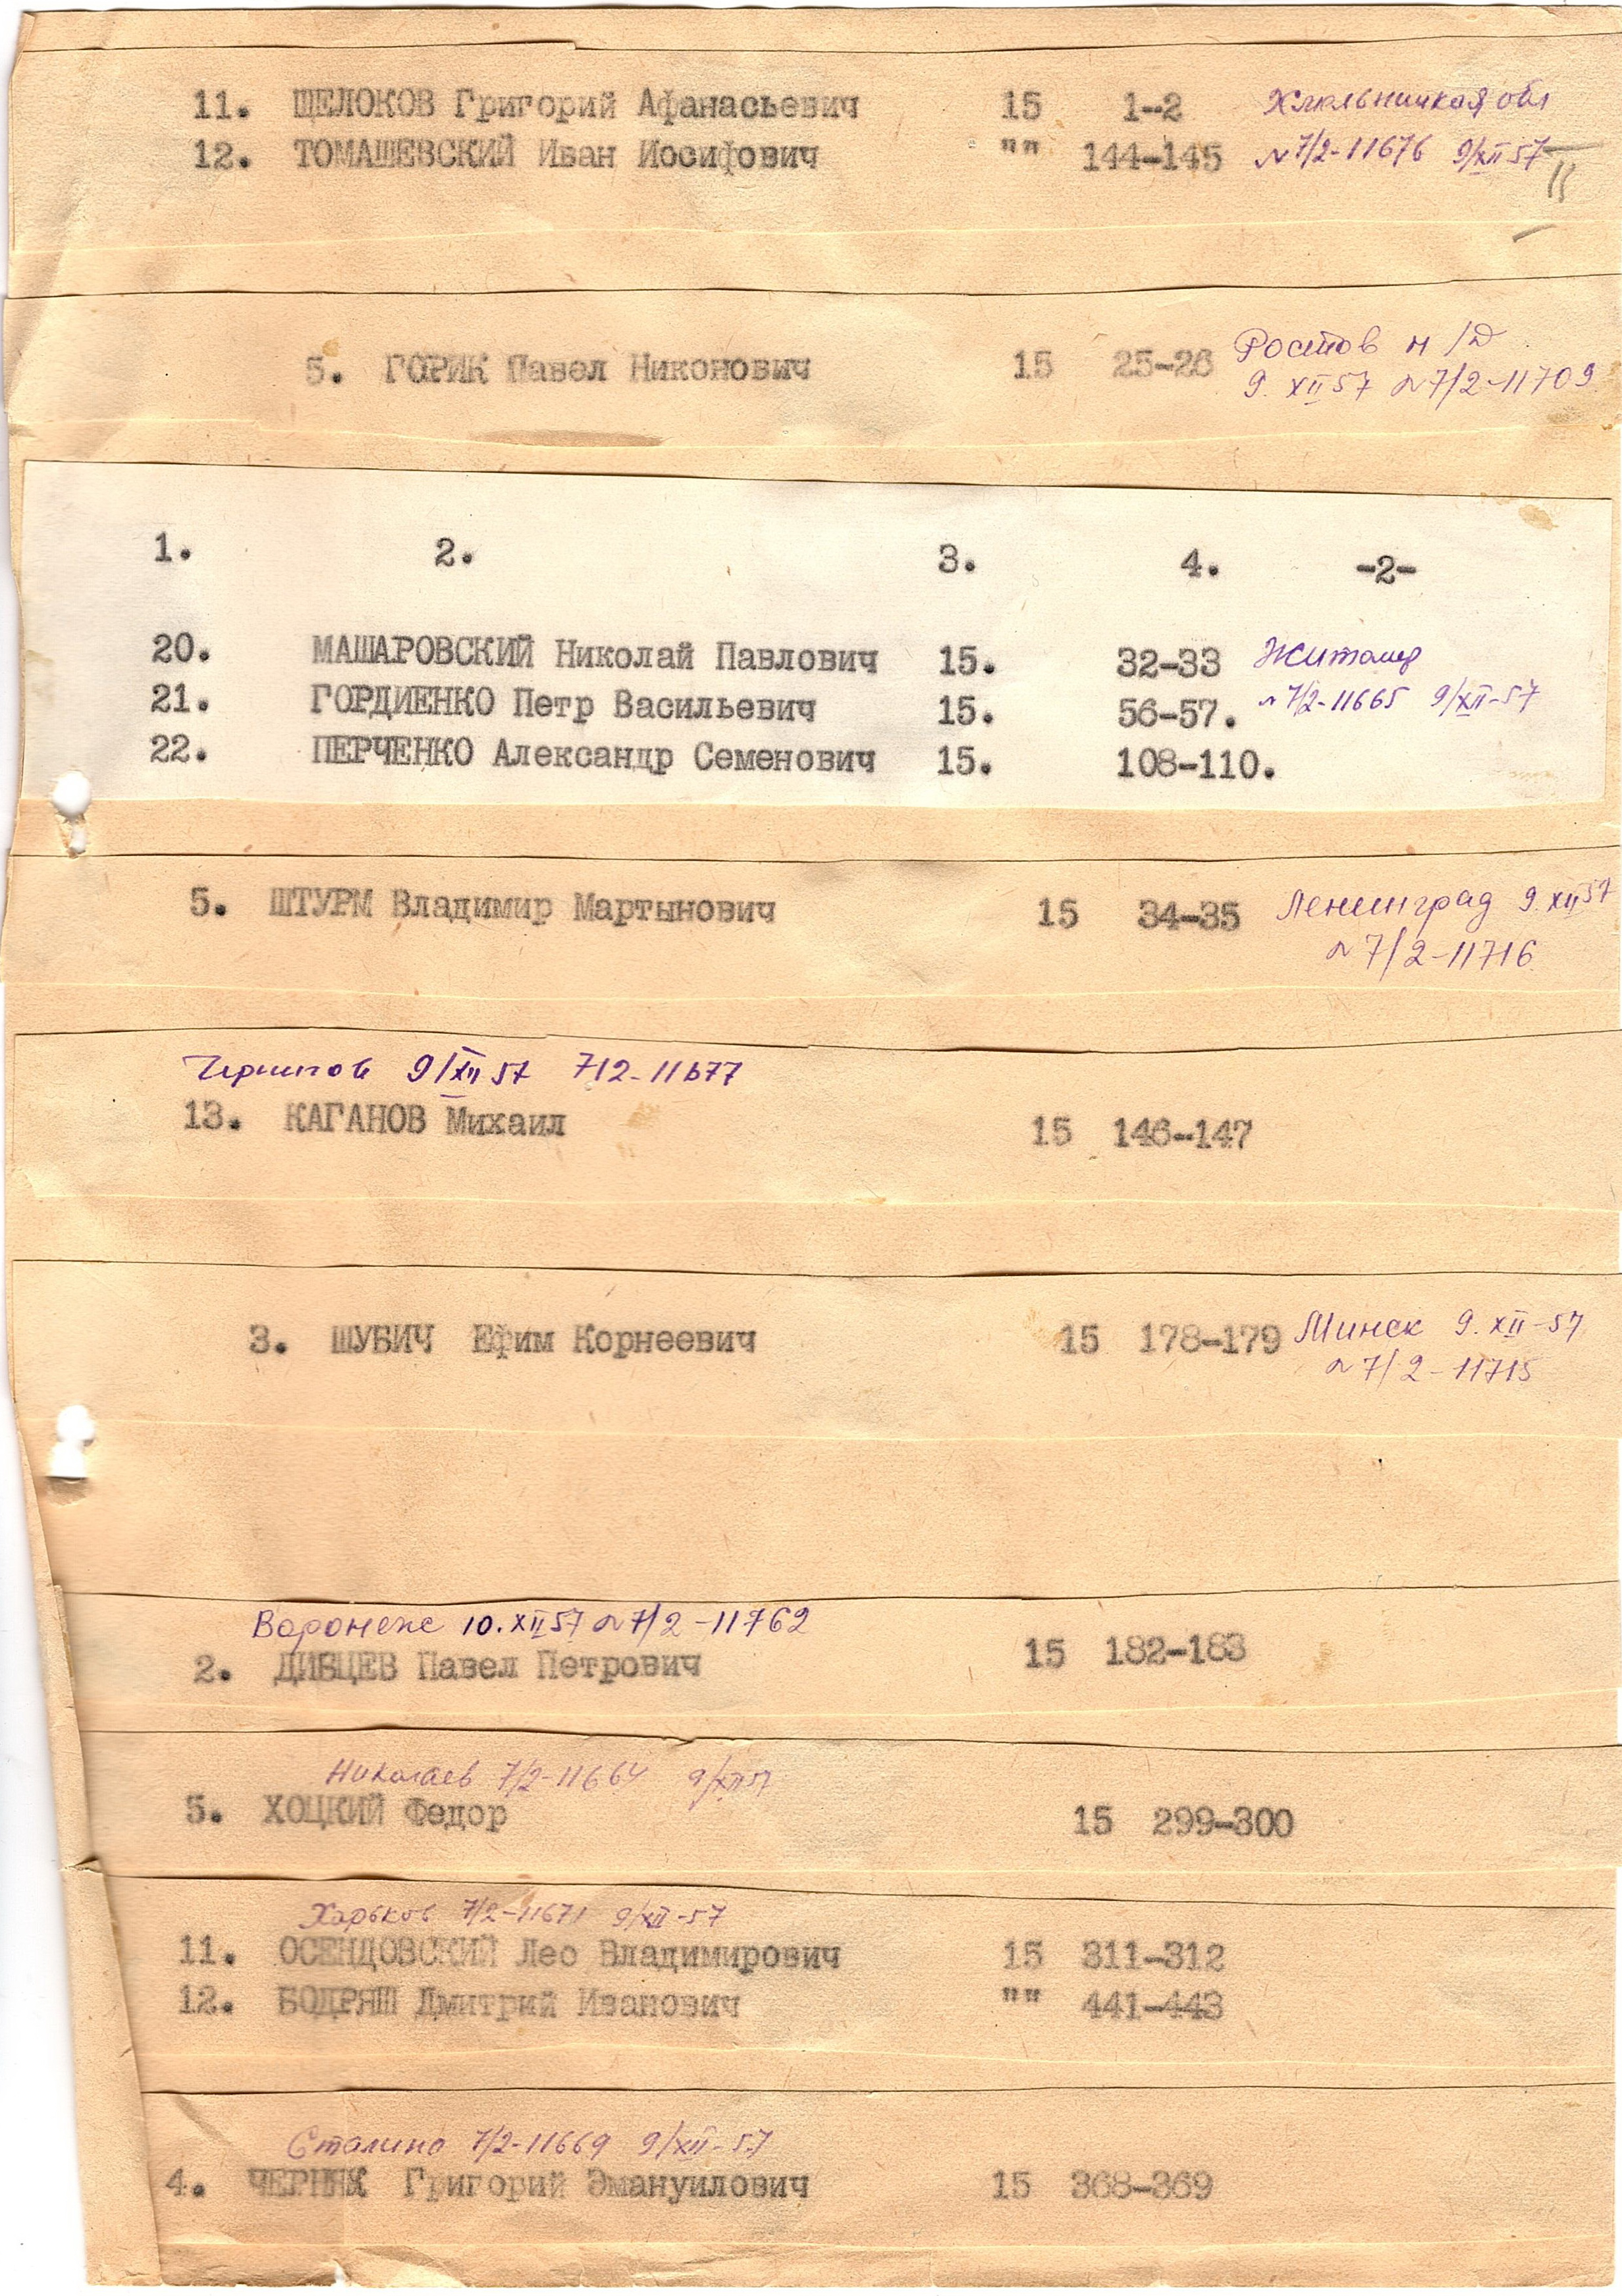 11. ЩЕЛОКОВ Григорий Афанасьевич 15 1-2 Хмельницкая обл
12. ТОМАШЕВСКИЙ Иван Иосифович "" 144-145 №7/2-11676 9/XII 57
5. ГОРИК Павел Никонович 15 25-26 Ростов н/Д
9. XII 57 №7/2-11709
1. 2. 3. 4. -2-
20. МАШАРОВСКИЙ Николай Павлович 15. 32-33 Житомир
21. ГОРДИЕНКО Петр Васильевич 15. 56-57. №7/2-11665 9/XII-57
22. ПЕРЧЕНКО Александр Семенович 15. 108-110.
5. ШТУРМ Владимир Мартынович 15 34-35 Ленинград 9.XII 57
№7/2-11716
Чернигов 9/XII 57 7/2-11677
13. КАГАНОВ Михаил 15 146-147
3. ШУБИЧ Ефим Корнеевич 15 178-179 Минск 9.XII-57
№7/2-11715
Воронеж 10.XII 57 №7/2-11762
2. ДИБЦЕВ Павел Петрович 15 182-183
Николаев 7/2-11664 9/XII 57
5. ХОЦКИЙ Федор 15 299-300
Харьков 7/2-11671 9/XII-57
11. ОСЕНДОВСКИЙ Лео Владимирович 15 311-312
12. БОДРЯШ Дмитрий Иванович "" 441-443
Сталино 7/2-11669 9/XII-57
4. ЧЕРНЯК Григорий Эмануилович 15 368-369